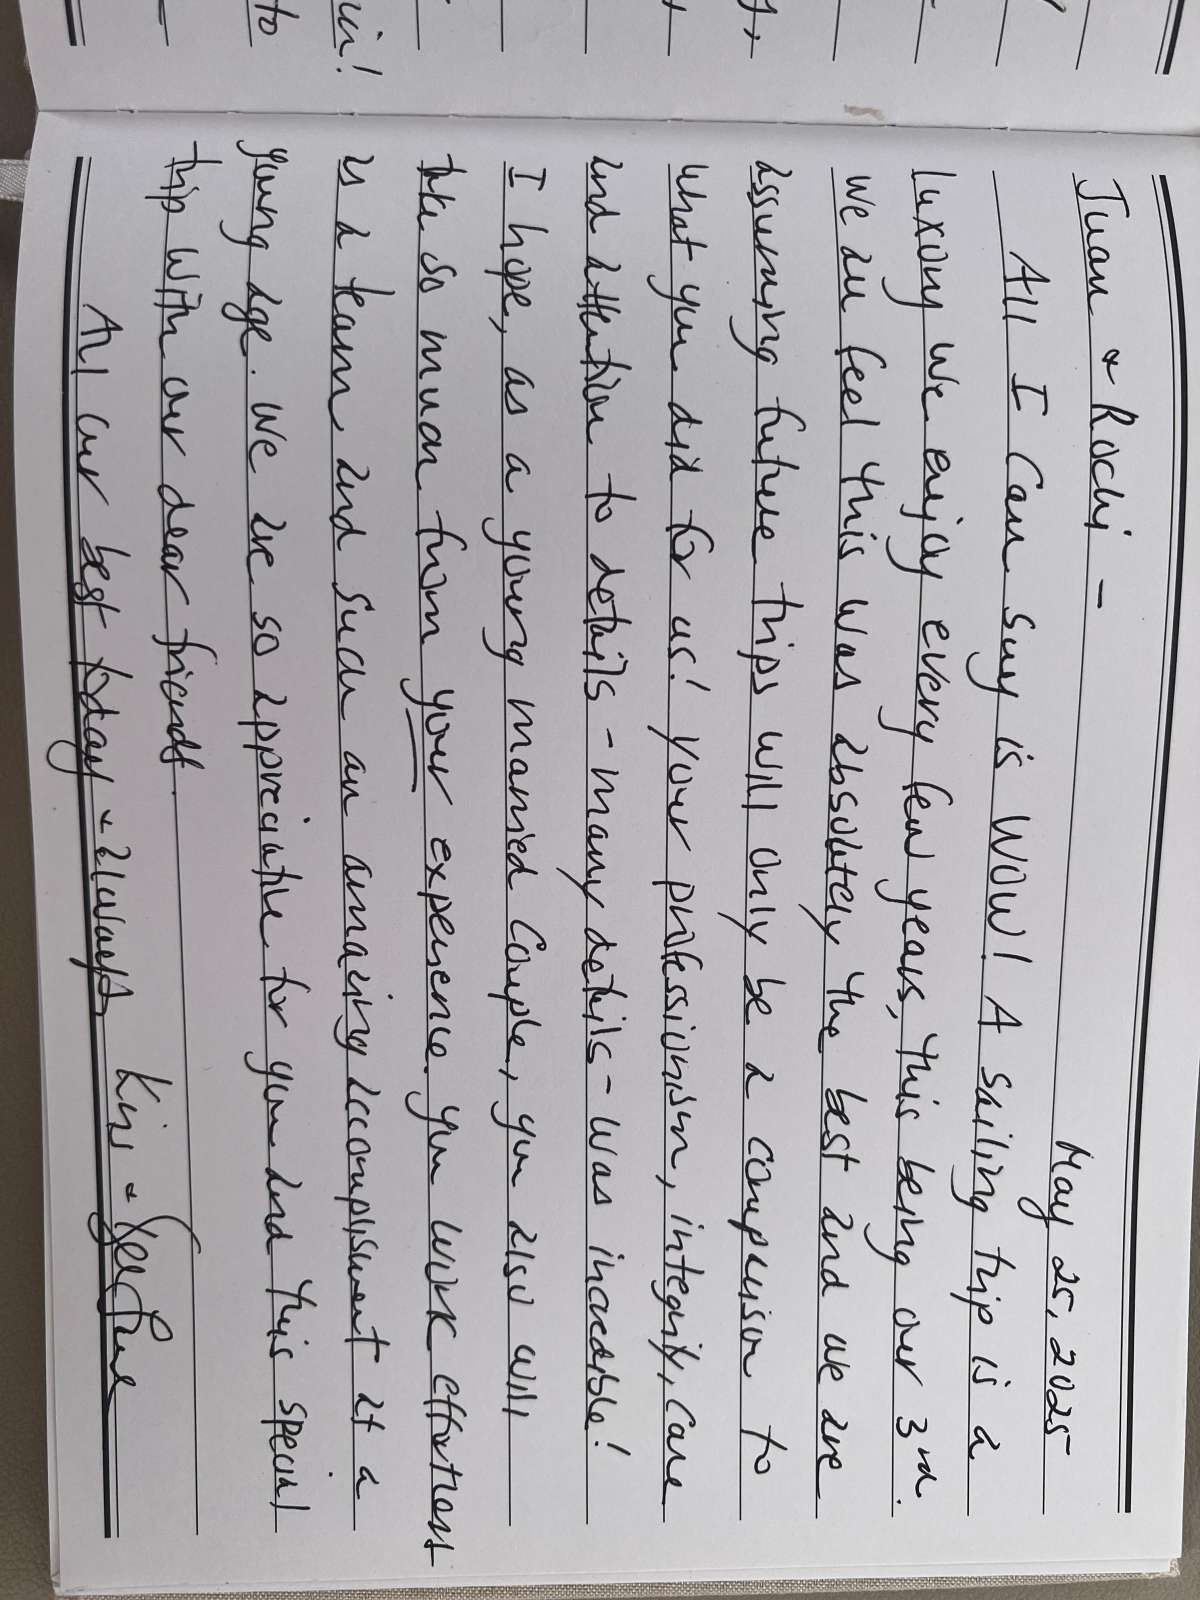 May 25, 2025
Juan & Rochi -
All I can say is WOW! A sailing trip is a
luxury we enjoy every few years, this being our 3rd.
We all feel this was absolutely the best and we are
assuming future trips will only be a comparison to
what you did for us! Your professionism, integrity, care
and attention to details - many details - was incredible!
I hope, as a young married couple, you also will
take so much from your experience. You work effortless
as a team and such an amazing accomplishment at a
young age. We are so appreciative for you and this special
trip with our dear friends.
All our best today & always
Kris &